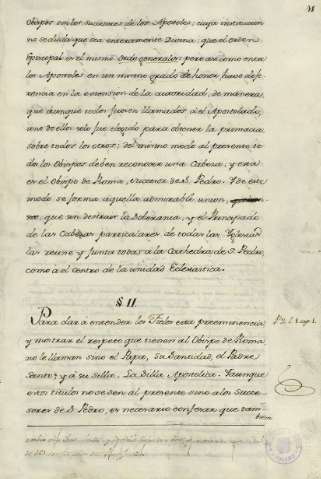 Obispos son los sucesores de los Apostoles; cuya institucion
no se duda que sea enteramente Divina: que el orden
Episcopal es el mismo
los Apostoles en un mismo grado de honor, huvo dife-
rencia en la extension de la autoridad, de manera
que aunque todos fueron llamados a el Apostolado,
uno de ellos solo fue elegido para obtener la primacia
sobre todos los otros; del mismo modo al presente to-
dos los Obispos deben reconocer una Cabeza; y esta
es el Obispo de Roma, sucesor de S. Pedro. Y de este
modo se forma aquella admirable union,
que sin destruir la Soberania, y el Principado
de las Cabezas particulares de todas las Iglesias
las reune y junta todas a la Cathedra de S. Pedro,
como a el centro de la unidad Eclesiastica.
§ II
Para dar a entender los Fieles esta preeminencia
y mostrar el respeto que tienen al Obispo de Roma
no le llaman sino el Papa, su Santidad, el Padre
Santo: y a su silla, La Silla Apostolica. Y aunque
estos titulos no se den al presente sino a los Succe-
sores de S. Pedro, es necesario confesar que tam-
bien